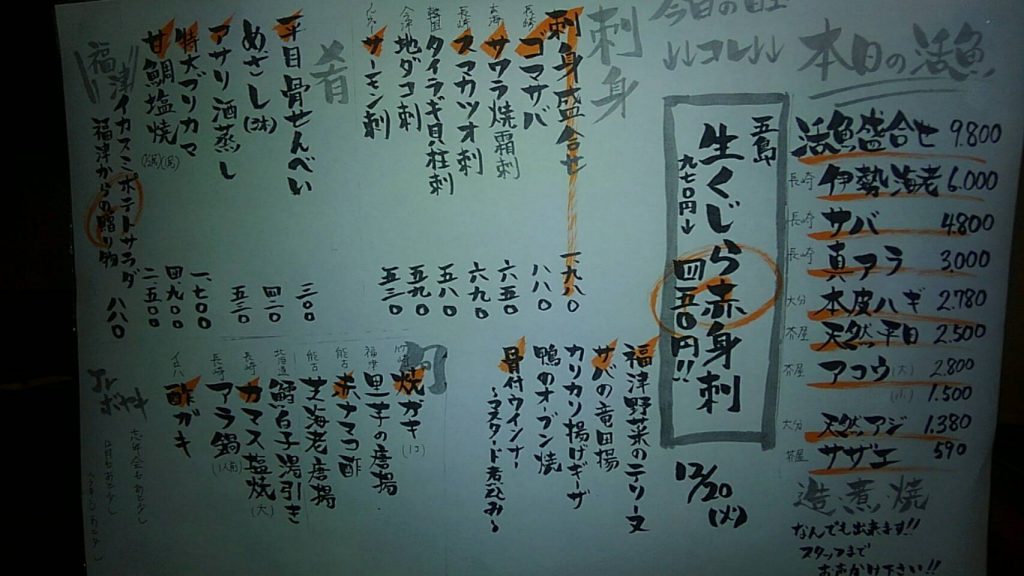 本日の活魚
活魚盛合せ 9.800
長崎 伊勢海老 6.000
長崎 サバ 4.800
長崎 真アラ 3.000
大分 本皮ハギ 2.780
茶屋 天然平目 2.500
茶屋 アコウ(大) 2.800
(小) 1.500
大分 天然アジ 1.380
茶屋 サザエ 590
造煮焼
なんでも出来ます!!
スタッフまで
お声かけ下さい!!
今日の目玉
↓↓コレ↓↓
五島
生くじら赤身刺
九七〇円↓四五〇円!!
12/20(火)
刺身
刺身盛合せ 一九八〇
長崎 ゴマサバ 八八〇
サワラ焼霜刺 六五〇
長崎 スマカツオ刺 六九〇
韓国 タイラギ貝柱刺 五八〇
地ダコ刺 五九〇
サーモン刺 五三〇
福津野菜のテリーヌ
サバの竜田揚
カリカリ揚げギョーザ
鴨のオーブン焼
骨付ウインナー
～マスタード煮込み～
肴
平目骨せんべい 三〇〇
めざし(3本) 四二〇
アサリ酒蒸し 五三〇
特大ブリカマ 一.七〇〇
甘鯛塩焼 四九〇〇 二五〇〇
焼ガキ(1コ)
里芋の唐揚
能古 赤ナマコ酢
能古 芝海老唐揚
北海道 鱈白子湯引き
長崎 カマス塩焼(大)
長崎 アラ鍋(1人前)
酢ガキ
福津
イカスミポテトサラダ 八八〇
福津からの贈り物